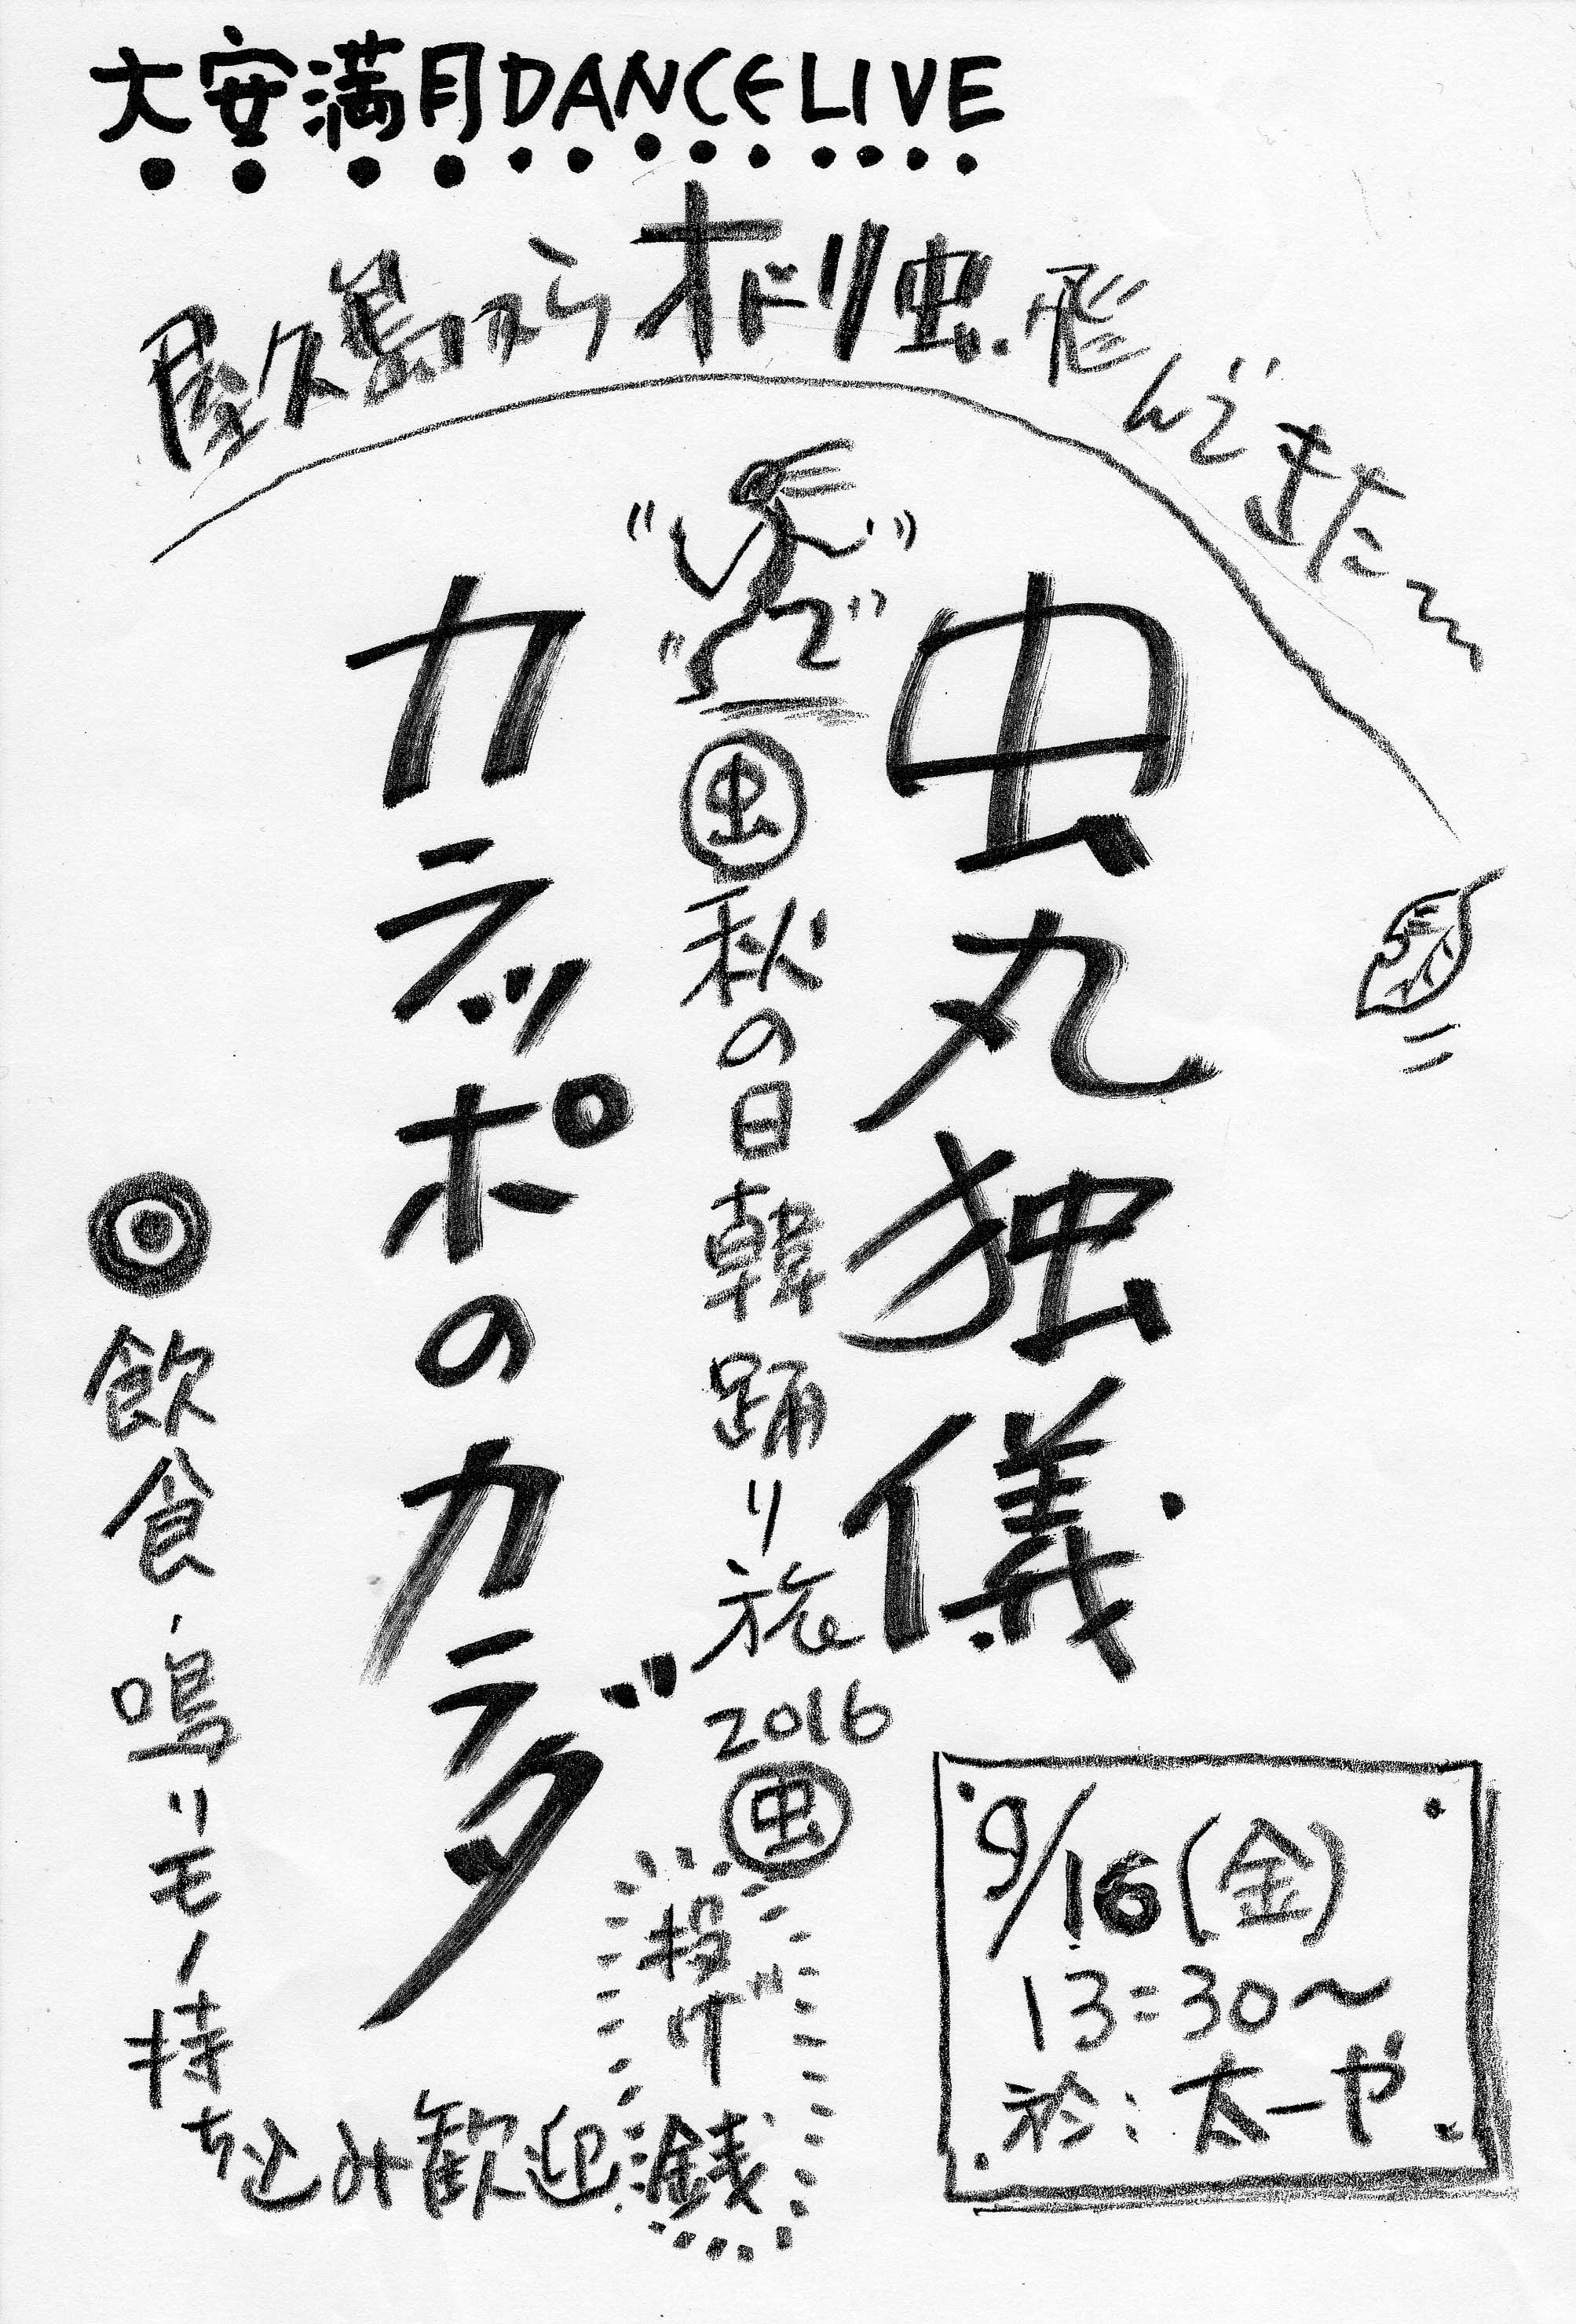 大安満月DANCELIVE
屋久島からオドリ虫.飛んできた〜
虫丸独儀
虫秋の日韓踊り旅2016虫
カラッポのカラダ
投げ銭
◎飲食、鳴リモノ持ち込み歓迎
9/16(金)
13:30〜
於:太一や